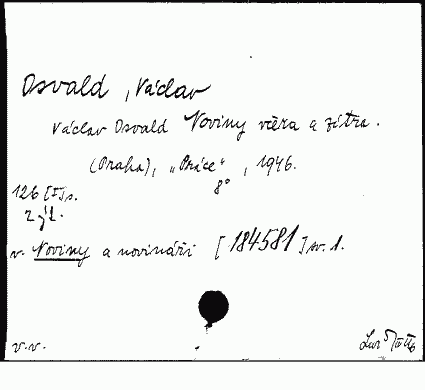 Osvald, Václav
Václav Osvald Noviny včera a zítra.
(Praha), „Práce“, 1946.
8°
126 [I] s.
v. Noviny a novináři [184581] sv. 1.
v.v.